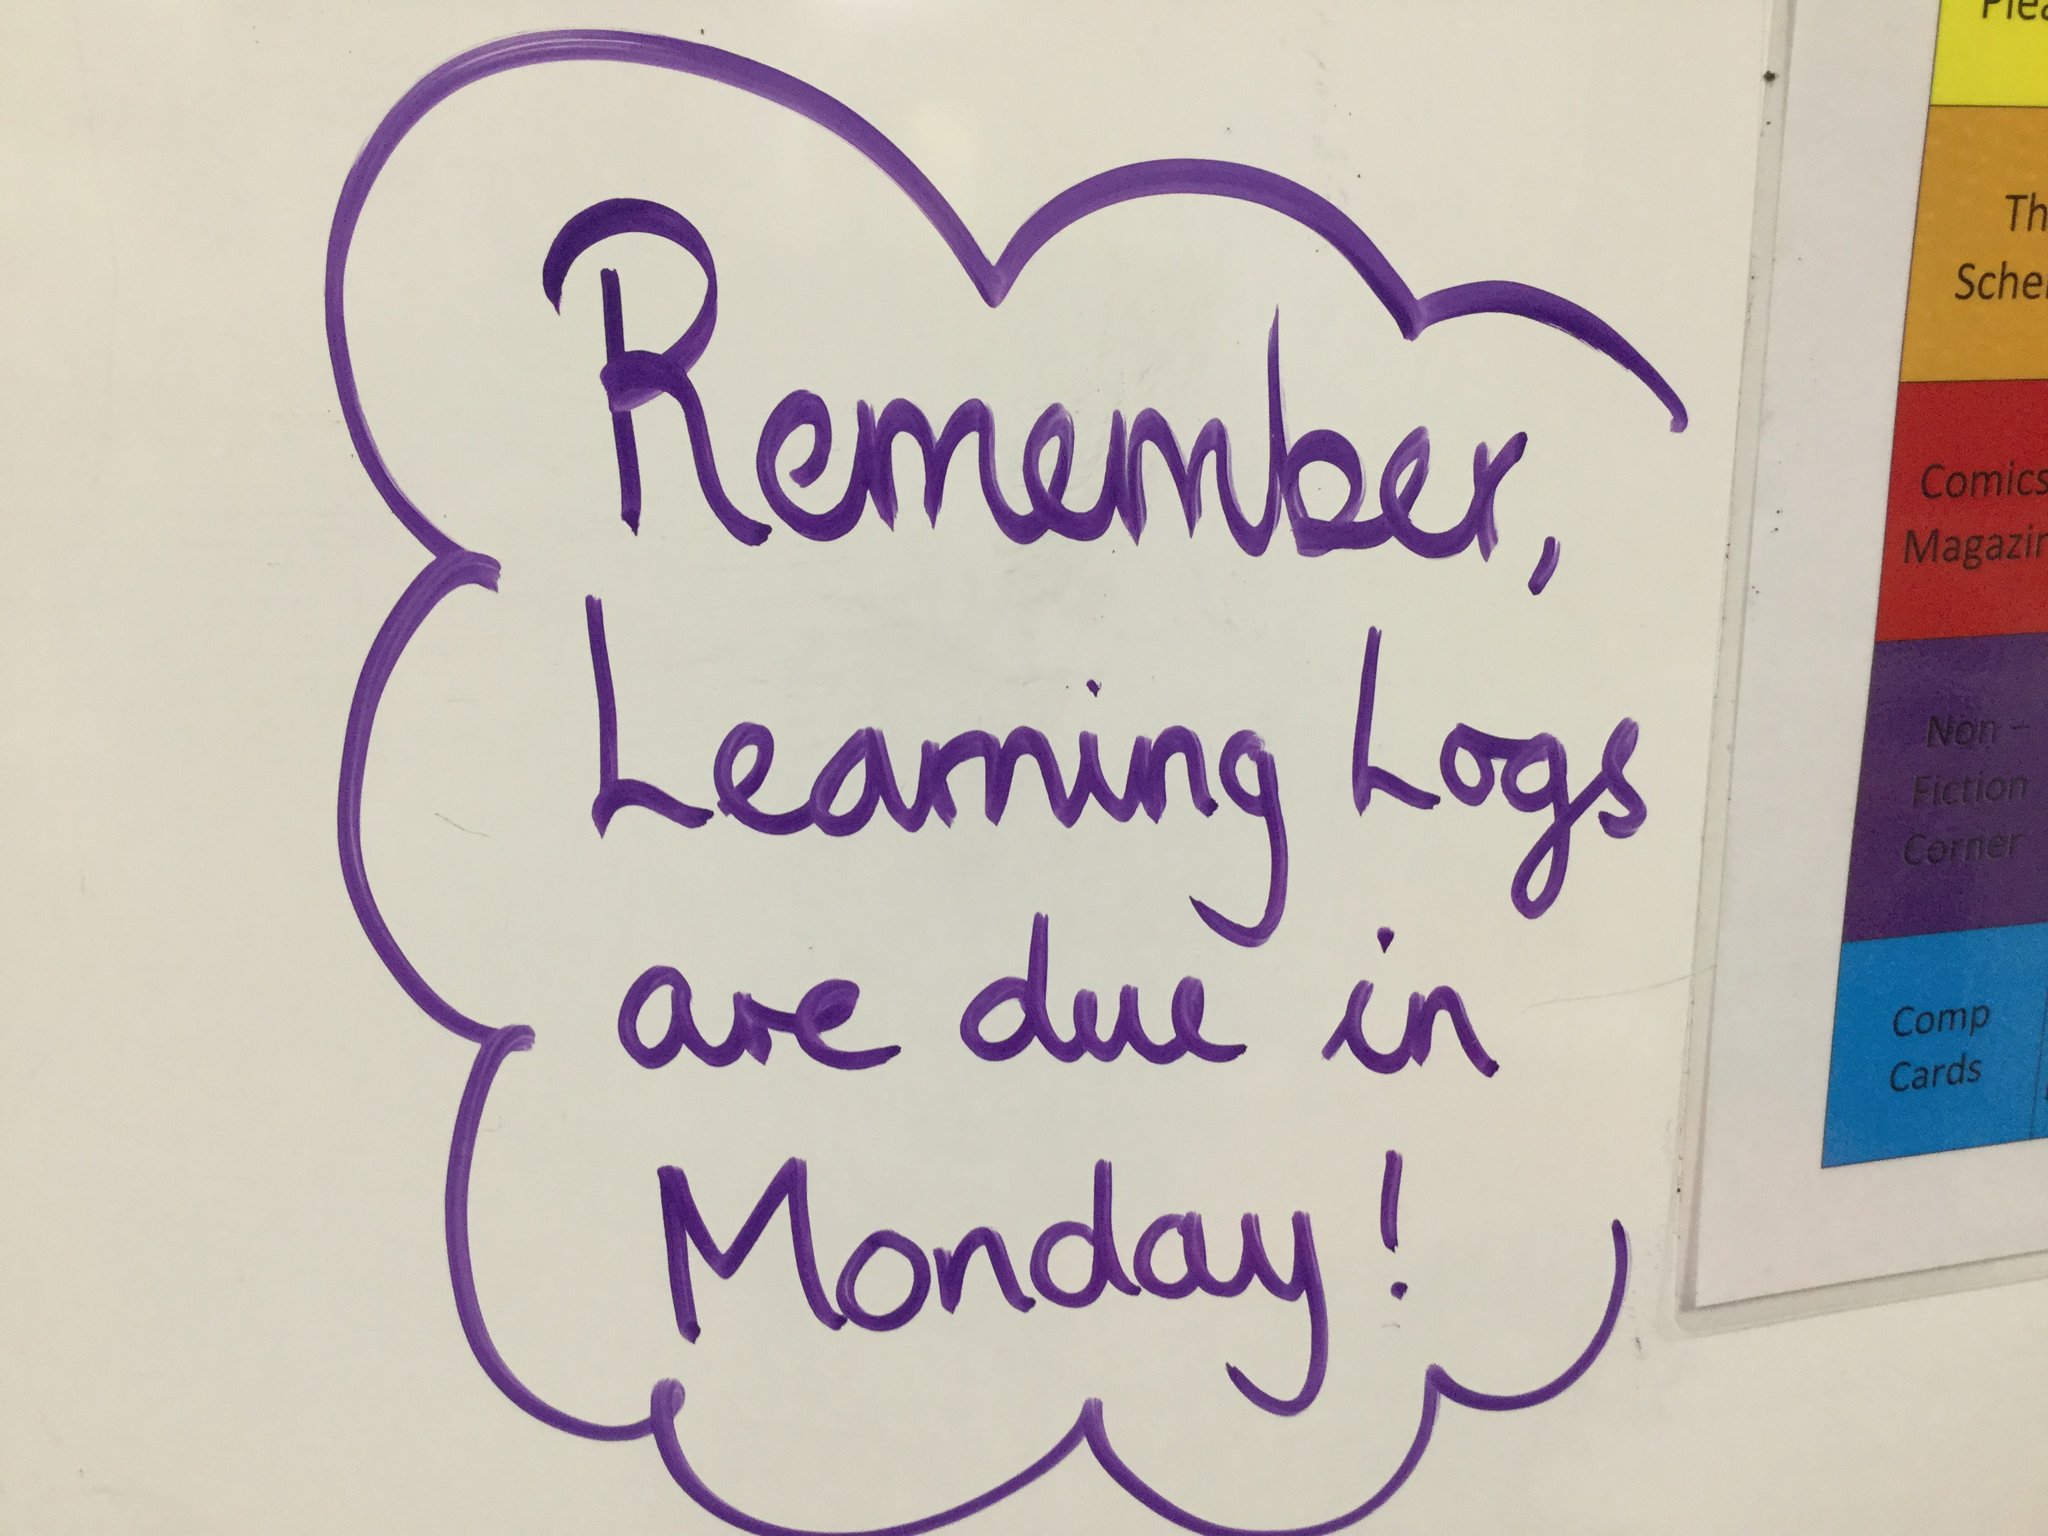 Remember,
Learning Logs
are due in
Monday!
Comics
Non –
Fiction
Corner
Comp
Cards